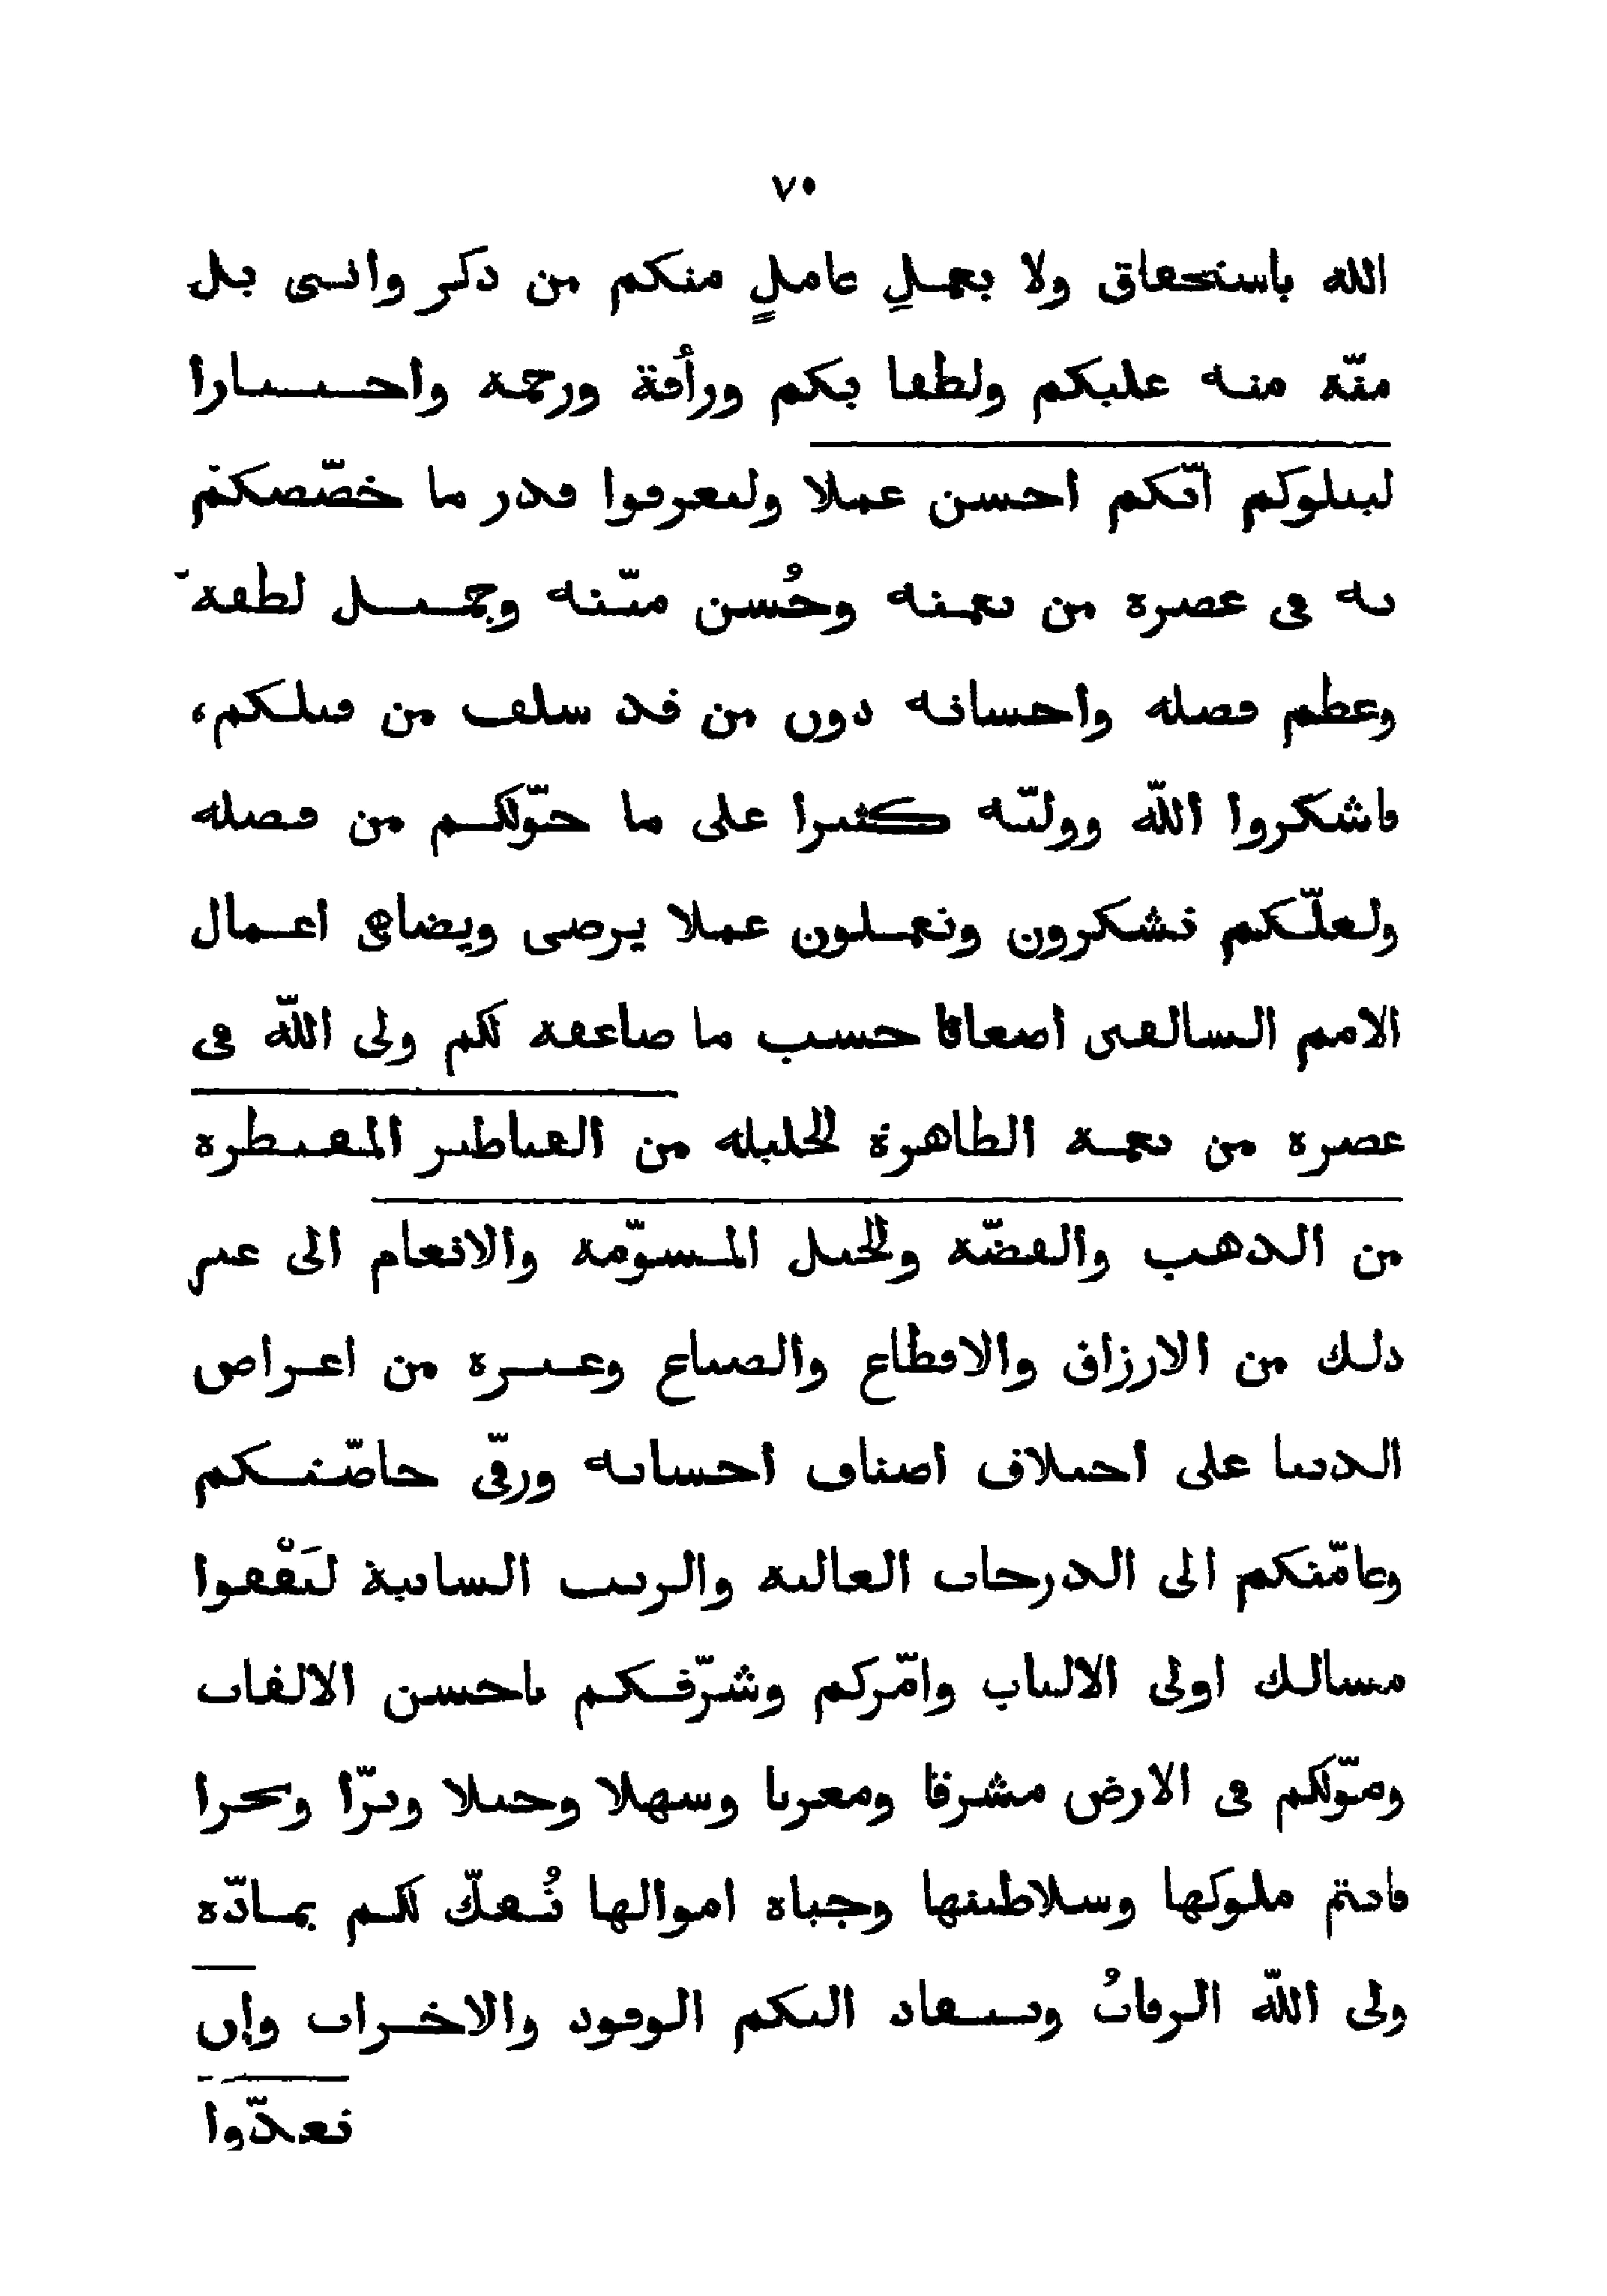 ٧٠
الله باستحقاق ولا بعملِ عاملٍ منكم من ذكر وانثى بل
منّة منه عليكم ولطفا بكم ورأفة ورحمة واختبارا
ليبلوكم ايّكم احسن عملا ولتعرفوا قدر ما خصّصكم
به فى عصره من نعمته وحُسن منّته وجميل لطفه
وعظم فضله واحسانه دون من قد سلف من قبلكم،
فاشكروا اللّه ووليّه كثيرا على ما خوّلكم من فضله
ولعلّكم تشكرون وتعملون عملا يرضى ويضاهى اعمال
الامم السالفين اضعافا حسب ما ضاعفه لكم ولى اللّه فى
عصره من نعمه الظاهرة الجليلة من القناطير المقنطرة
من الذهب والفضّة والخيل المسوّمة والانعام الى غير
ذلك من الارزاق والاقطاع والضياع وغيره من اعراض
الدنيا على اختلاف اصناف احسانه ورقّى خاصّتكم
وعامّتكم الى الدرجات العالية والرتب السامية لتَقْفوا
مسالك اولى الالباب وامّركم وشرّفكم باحسن الالقاب
وموّلكم فى الارض مشرقا ومغربا وسهلا وجبلا وبرّا وبحرا
فانتم ملوكها وسلاطينها وجباة اموالها تُفكّ لكم بمادّة
ولى اللّه الرقابُ وتنقاد اليكم الوفود والاحزاب وإن
تعدّوا